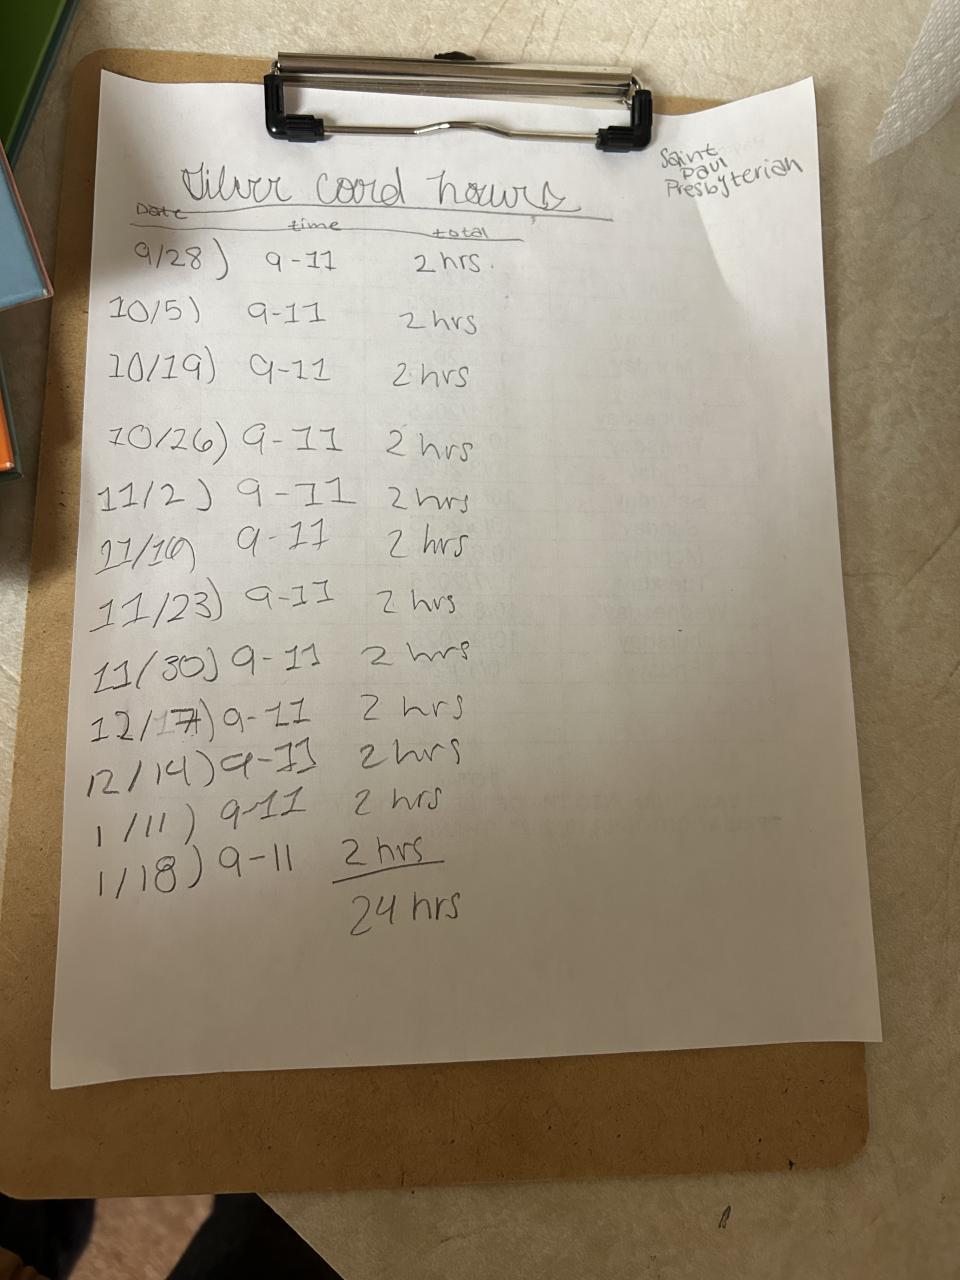 Saint
Paul
Presbyterian
Silver cord hours
Date time total
9/28) 9-11 2 hrs.
10/5) 9-11 2 hrs
10/19) 9-11 2 hrs
10/26) 9-11 2 hrs
11/2) 9-11 2 hrs
9-11 2 hrs
11/23) 9-11 2 hrs
11/30) 9-11 2 hrs
9-11 2 hrs
12/14) 9-11 2 hrs
1/11) 9-11 2 hrs
1/18) 9-11 2 hrs
24 hrs